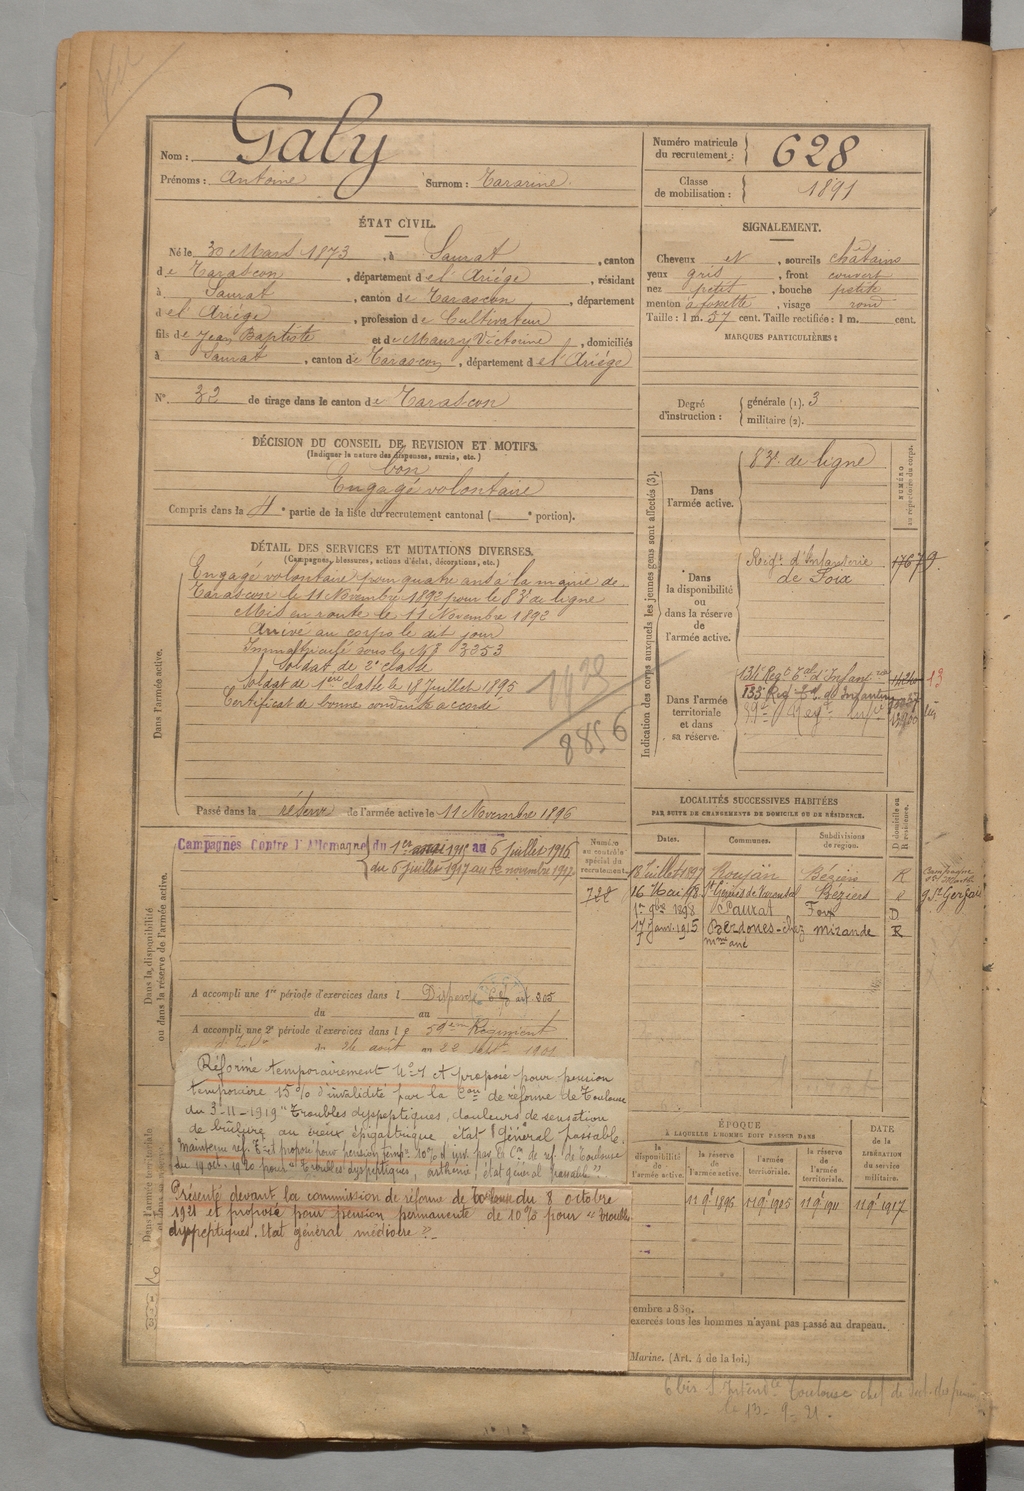 Nom : Galy
Prénoms : Antoine Surnom : Tararine.
Numéro matricule du recrutement : 628
Classe de mobilisation : 1891
ÉTAT CIVIL.
Né le 30 Mars 1873, à Saurat, canton
de Tarascon, département de l'Ariége, résidant
à Saurat, canton de Tarascon, département
de l'Ariége, profession de Cultivateur
fils de Jean Baptiste et de Maury Victorine, domiciliés
à Saurat, canton de Tarascon, département de l'Ariége
N° 32 de tirage dans le canton de Tarascon
SIGNALEMENT.
Cheveux et, sourcils châtains
yeux gris, front couvert
nez petit, bouche petite
menton à fossette, visage rond
Taille : 1 m. 57 cent. Taille rectifiée : 1 m. cent.
MARQUES PARTICULIÈRES :
Degré d'instruction : générale (1). 3
militaire (2).
DÉCISION DU CONSEIL DE REVISION ET MOTIFS.
(Indiquer la nature des dispenses, sursis, etc.)
bon
Engagé volontaire
Compris dans la 4e partie de la liste du recrutement cantonal ( e portion).
DÉTAIL DES SERVICES ET MUTATIONS DIVERSES.
(Campagnes, blessures, actions d'éclat, décorations, etc.)
Dans l'armée active.
Engagé volontaire pour quatre ans à la mairie de
Tarascon le 11 Novembre 1892 pour le 83e de ligne
Mis en route le 11 Novembre 1892
Arrivé au corps le dit jour
Immatriculé sous le N° 3353
Soldat de 2e classe
Soldat de 1ère classe le 18 Juillet 1895
Certificat de bonne conduite accordé
8856
Passé dans la réserve de l'armée active le 11 Novembre 1896
Indication des corps auxquels les jeunes gens sont affectés (3).
NUMÉRO au répertoire du corps.
Dans l'armée active.
83e de ligne
Dans la disponibilité ou dans la réserve de l'armée active.
Régt d'Infanterie de Foix
Dans l'armée territoriale et dans sa réserve.
134e Régt Tal d'Infant
133e Reg Tal d'Infanterie
13
LOCALITÉS SUCCESSIVES HABITÉES
PAR SUITE DE CHANGEMENTS DE DOMICILE OU DE RÉSIDENCE.
Dates. Communes. Subdivisions de région. D domicile ou R résidence.
18 Juillet 1897 Roujan Béziers R
16 Mai 98 St Geniès de Varensal Béziers R
1er 9bre 1898 Saurat Foix D
17 Janv. 1915 Berdoues-chez Mme Mirande R
Campagnes Contre l'Allemagne du 1er mai 1915 au 6 Juillet 1916
du 6 Juillet 1917 au 12 novembre 1917
Numéro au contrôle spécial du recrutement.
728
Dans la disponibilité ou dans la réserve de l'armée active.
A accompli une 1re période d'exercices dans l Dispensé art 305
du au
A accompli une 2e période d'exercices dans le 59ème Régiment
du 26 août au 22 sept 1901
Réformé temporairement N° 1 et proposé pour pension
temporaire 15% d'invalidité par la Con de réforme de Toulouse
du 3-11-1919 "Troubles dyspeptiques, douleurs de sensation
de brûlure au creux épigastrique état général passable.
Maintenu réf. T. et proposé pour pension temp. 10% d'inv. par la Con de réf. de Toulouse
du 19 oct. 1920 pour "Troubles dyspeptiques, asthénie, état général passable".
Présenté devant la commission de réforme de Toulouse du 8 octobre
1921 et proposé pour pension permanente de 10% pour "troubles
dyspeptiques. Etat général médiocre".
Dans l'armée territoriale
ÉPOQUE
À LAQUELLE L'HOMME DOIT PASSER DANS
DATE de la LIBÉRATION du service militaire.
la disponibilité de l'armée active. la réserve de l'armée active. l'armée territoriale. la réserve de l'armée territoriale.
11 9e 1896 11 9e 1905 11 9e 1911 11 9e 1917
embre 1889.
exercés tous les hommes n'ayant pas passé au drapeau.
Marine. (Art. 4 de la loi.)
le 13-9-21.